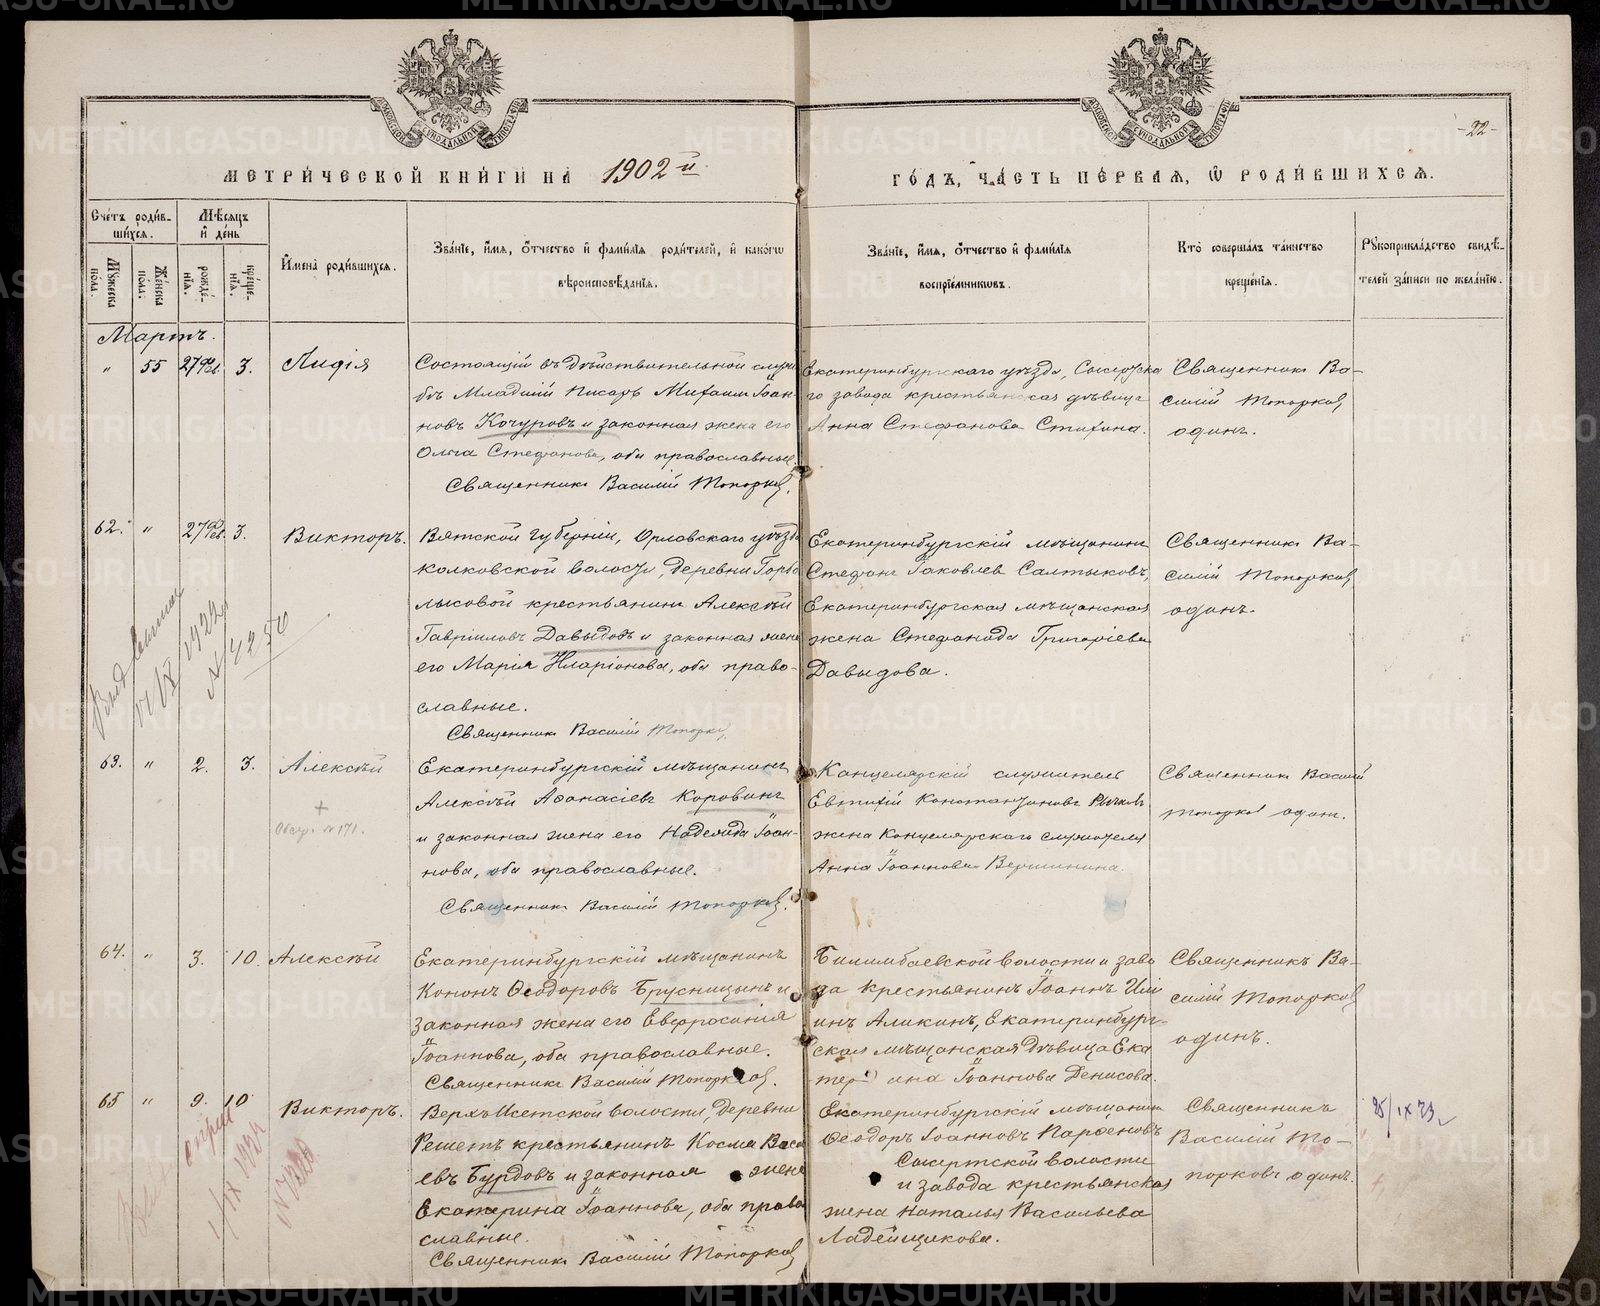 МЕТРИ́ЧЕСКОЙ КНИ́ГИ НА 1902й
ГО́ДЪ, ЧА́СТЬ ПЕ́РВАЯ, Ѡ РОДИ́ВШИХСЯ.
-22-
Сче́тъ роди́в-
ших́ся.
Мѣ́сяцъ
и де́нь
Му́жеска
по́ла.
Же́нска
по́ла.
рожде́-
нія.
креще́-
нія.
Имена̀ роди́вшихся.
Зва́ніе, и́мя, о́тчество и фами́лія роди́телей, и како́гω
вѣроисповѣ́данія.
Зва́ніе, и́мя, о́тчество и фами́лія
воспріе́мникωвъ.
Кто̀ соверша́лъ та́инство
креще́нія.
Рукоприкла́дство свидѣ́-
телей за́писи по жела́нію.
Мартъ.
" 55 27 Фев. 3. Лидія
Состоящій въ дѣйствительной служ-
бѣ Младшій Писарь Михаилъ Іоан-
новъ Кочуровъ и законная жена его
Ольга Стефанова, оба православные.
Священникъ Василій Топорковъ.
Екатеринбургскаго уѣзда, Сысертска
го завода крестьянская дѣвица
Анна Стефанова Стихина.
Священникъ Ва-
силій Топорковъ
одинъ.
62. " 27 Фев. 3. Викторъ.
Вятской губерніи, Орловскаго уѣзда
колковской волости, деревни Горбо
лысовой крестьянинъ Алексѣй
Гавріиловъ Давыдовъ и законная жена
его Марія Иларіонова, оба право-
славные.
Священникъ Василій Топорковъ.
Екатеринбургскій мѣщанинъ
Стефанъ Іаковлевъ Салтыковъ,
Екатеринбургская мѣщанская
жена Стефанида Григоріева
Давыдова.
Священникъ Ва-
силій Топорковъ
одинъ.
IX 1922
N 4250
63. " 2. 3. Алексѣй
N 171.
Екатеринбургскій мѣщанинъ
Алексѣй Аѳанасіевъ Коровинъ
и законная жена его Надежда Іоан-
нова, оба православные.
Священникъ Василій Топорковъ.
Канцелярскій служитель
Евтихій Константиновъ
жена Канцелярскаго служителя
Анна Іоаннова Вершинина.
Священникъ Василій
Топорковъ одинъ.
64. " 3. 10. Алексѣй
Екатеринбургскій мѣщанинъ
Кононъ Ѳеодоровъ Брусницынъ и
законная жена его Евфросинія
Іоаннова, оба православные.
Священникъ Василій Топорковъ.
Билимбаевской волости и заво
да крестьянинъ Іоаннъ Иль
инъ Аликинъ, Екатеринбург-
ская мѣщанская дѣвица Ека
терина Іоаннова Денисова.
Священникъ Ва-
силій Топорковъ
одинъ.
65 " 9. 10 Викторъ.
Верхъ-Исетской волости, деревни
Решетъ крестьянинъ Косма Васи
евъ Бурдовъ и законная жена
Екатерина Іоаннова, оба право
славные.
Священникъ Василій Топорковъ
Екатеринбургскій мѣщанинъ
Ѳеодоръ Іоанновъ Парѳеновъ
Сысертской волости
и завода крестьянская
жена Наталья Васильева
Ладейщикова.
Священникъ
Василій То-
порковъ одинъ.